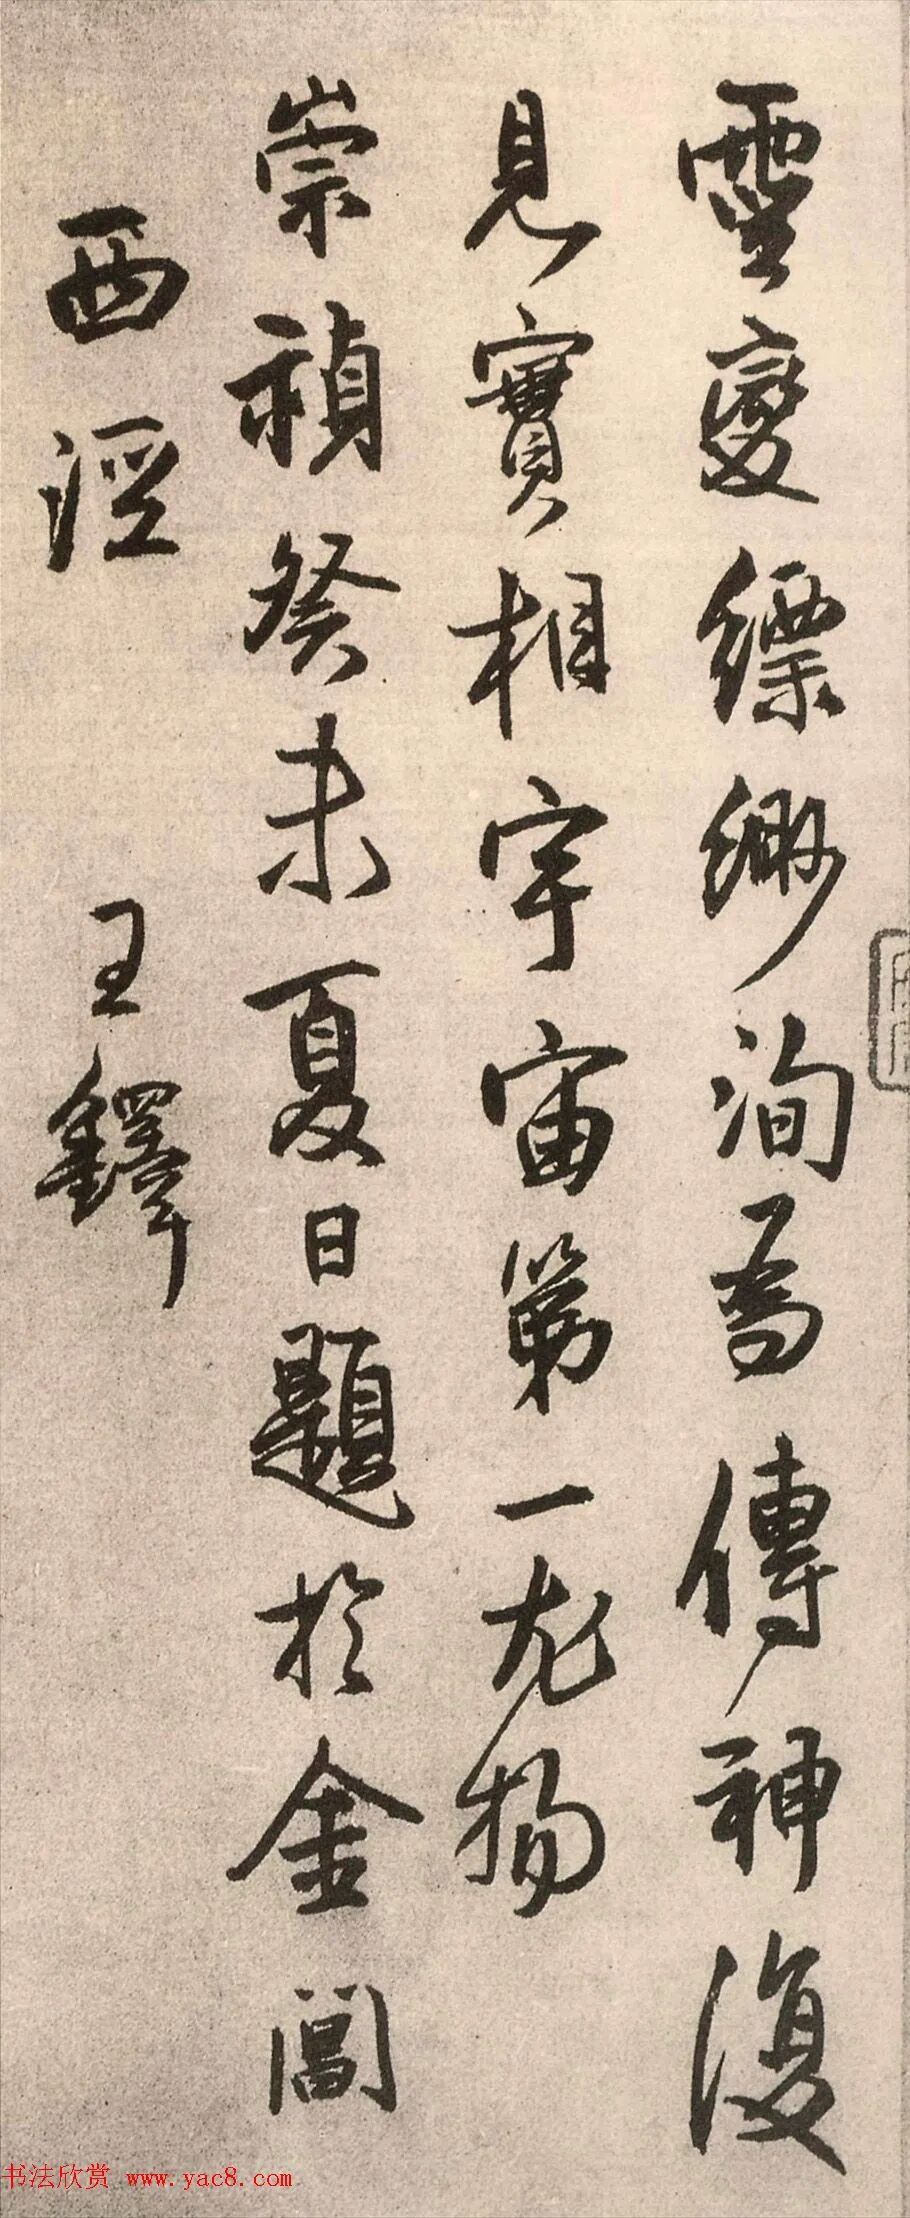 靈變縹緲洵為傳神復
見實相宇宙第一尤物
崇禎癸未夏日題於金閶
西涇 王鐸
书法欣赏 www.yac8.com